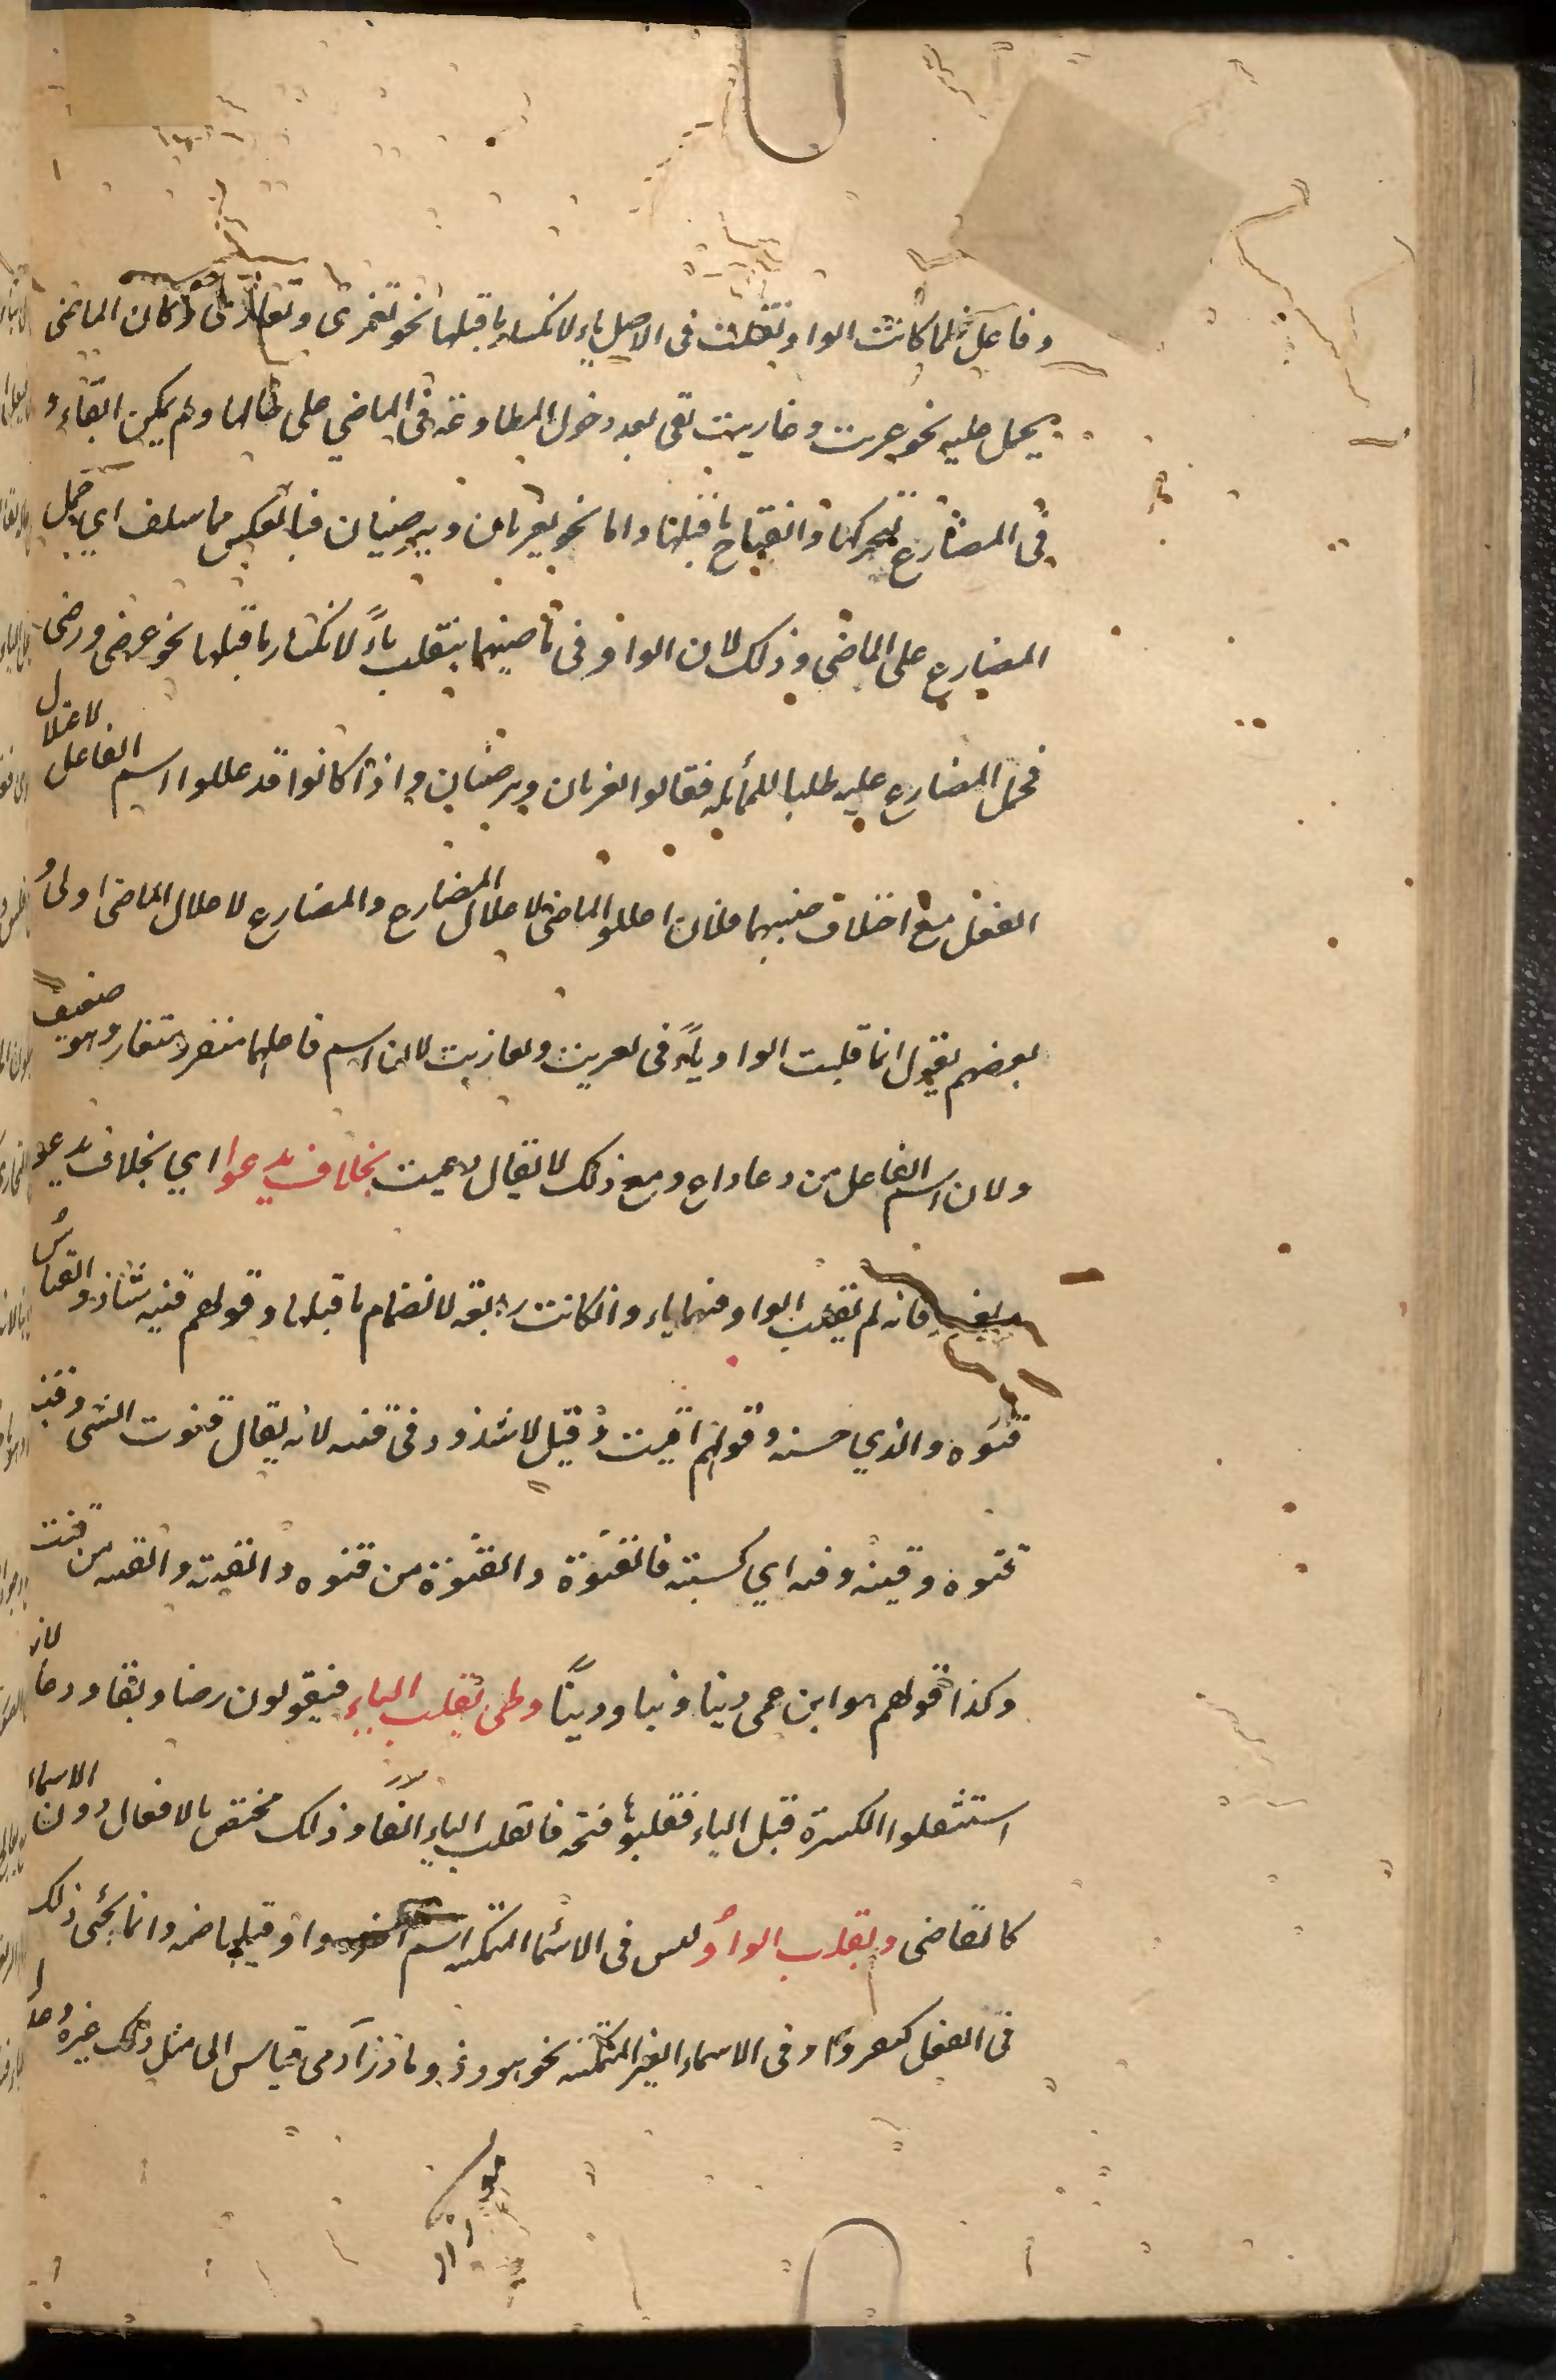 وفاعل فلما كانت الواو تقلب فى الاصل ياء لانكسار ما قبلها نحو تغزى وتغازى وكان الماضى
يحمل عليه نحو غريت وغازيت بقى بعد دخول المطاوعة فى الماضي على حالها ولم يمكن ابقاء و
فى المضارع لتحركها وانفتاح ما قبلها واما نحو يغزيان ويرضيان فبالعكس مما سلف اي حمل
المضارع على الماضى وذلك لان الواو فى ماضيهما ينقلب ياءً لانكسار ما قبلها نحو غزى ورضى
فحمل المضارع عليه طلبا للمماثلة فقالوا يغزيان ويرضيان واذا كانوا قد عللوا اسم الفاعل لاعلال
الفعل مع اختلاف جنسيهما فلان اعللوا الماضى لاعلال المضارع والمضارع لاعلال الماضى اولى و
بعضهم يقول انما قلبت الواو ياءً فى تغريت وتغازيت لان اسم فاعلهما متغز ومتغاز وهو ضعيف
ولان اسم الفاعل من دعا داع ومع ذلك لا يقال دعيت بخلاف يدعوا اي بخلاف يدعو
ويغزو فانه لم تقلب الواو فيهما ياء وان كانت رابعة لانضمام ما قبلها وقولهم قنية شاذ والقياس
قنوة والذي حسنه وقولهم اقنيت وقيل لا شذوذ فى قنية لانه يقال قنوت الشى وقنيته
قنوة وقنية اي كسبته فالقنوة والقنوة من قنوه والقنية والقنية من قنيت
وكذا قولهم هو ابن عمى دنيا ودنيا ودنيًا وطى تقلب الياء فيقولون رضا وبقا ودعا لان
استثقلوا الكسرة قبل الياء فقلبوها فتحة فانقلب الياء الفا وذلك مختص بالافعال دون الاسماء
كالقاضى وبقلب الواو وليس فى الاسماء المتمكنه اسم اخره واو قبلها ضمه وانما يجئى ذلك
فى الفعل كيغزو وفى الاسماء الغير المتمكنه نحو هو وذو وماذا ادى قياس الى مثل ذلك غيروه